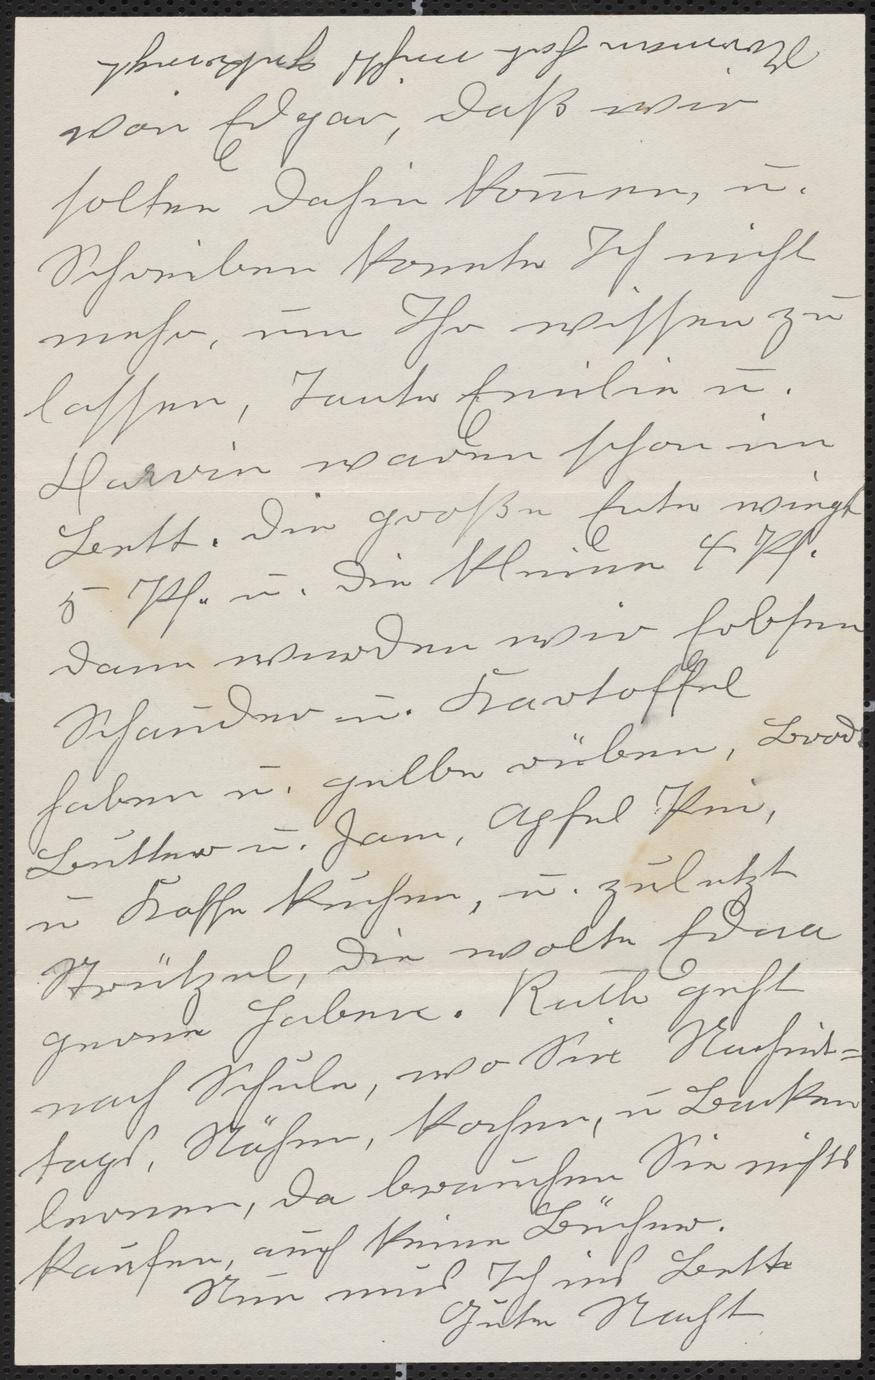 Norman hat nicht
von Edgar, daß wir
solten dahin kom̄en, u.
Schreiben konnte Ich nicht
mehr, um Ihr wissen zu
lassen, Tante Emilie u.
Marvin waren schon im
Bett. Die große Ente wiegt
5 Pf. u. die kleine 4 Pf.
dann wurden wir Erbsen
Schauder u. Kartoffel
haben u. gelbe rüben, Brod.
Butter u. Jam, Apfel Pei,
u Kaffe kuchen, u. zuletzt
Strützel, die wolte Edna
gerne haben. Ruth geht
nach Schule, wo Sie Nachmit=
tags, Nähen, kochen, u Backen
lernen, da brauchen Sie nichts
kaufen, auch keine Bücher.
Nun mus Ich ins Bett
Gute Nacht